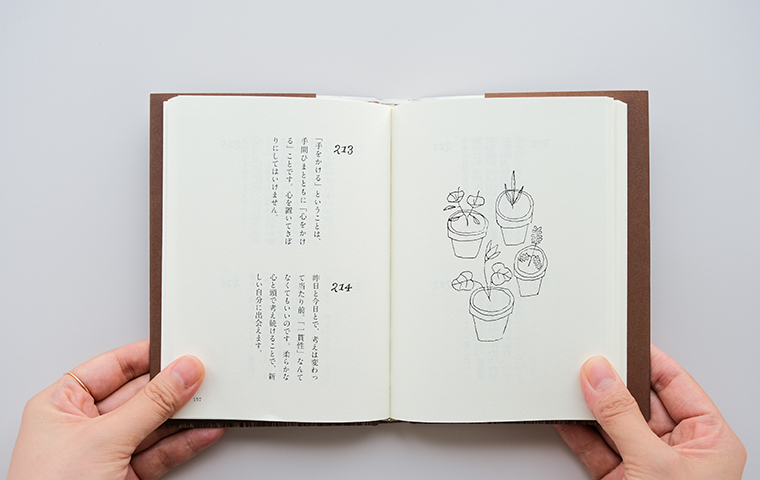 213
「手をかける」ということは、
手間ひまとともに「心をかけ
る」ことです。心を置いてきぼ
りにしてはいけません。
214
昨日と今日とで、考えは変わっ
て当たり前。「一貫性」なんて
なくてもいいのです。柔らかな
心と頭で考え続けることで、新
しい自分に出会えます。